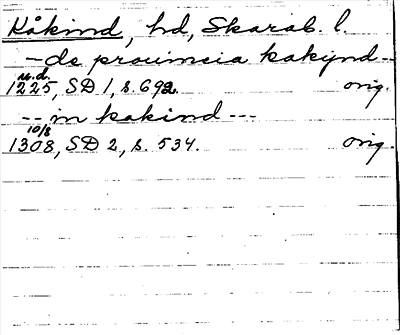 Kåkind, hd, Skarab. l.
- de prouincia kakynd -
u.d.
1225, SD 1, s. 692 orig.
-- in kakind ---
10/8
1308, SD 2, s. 534. orig.